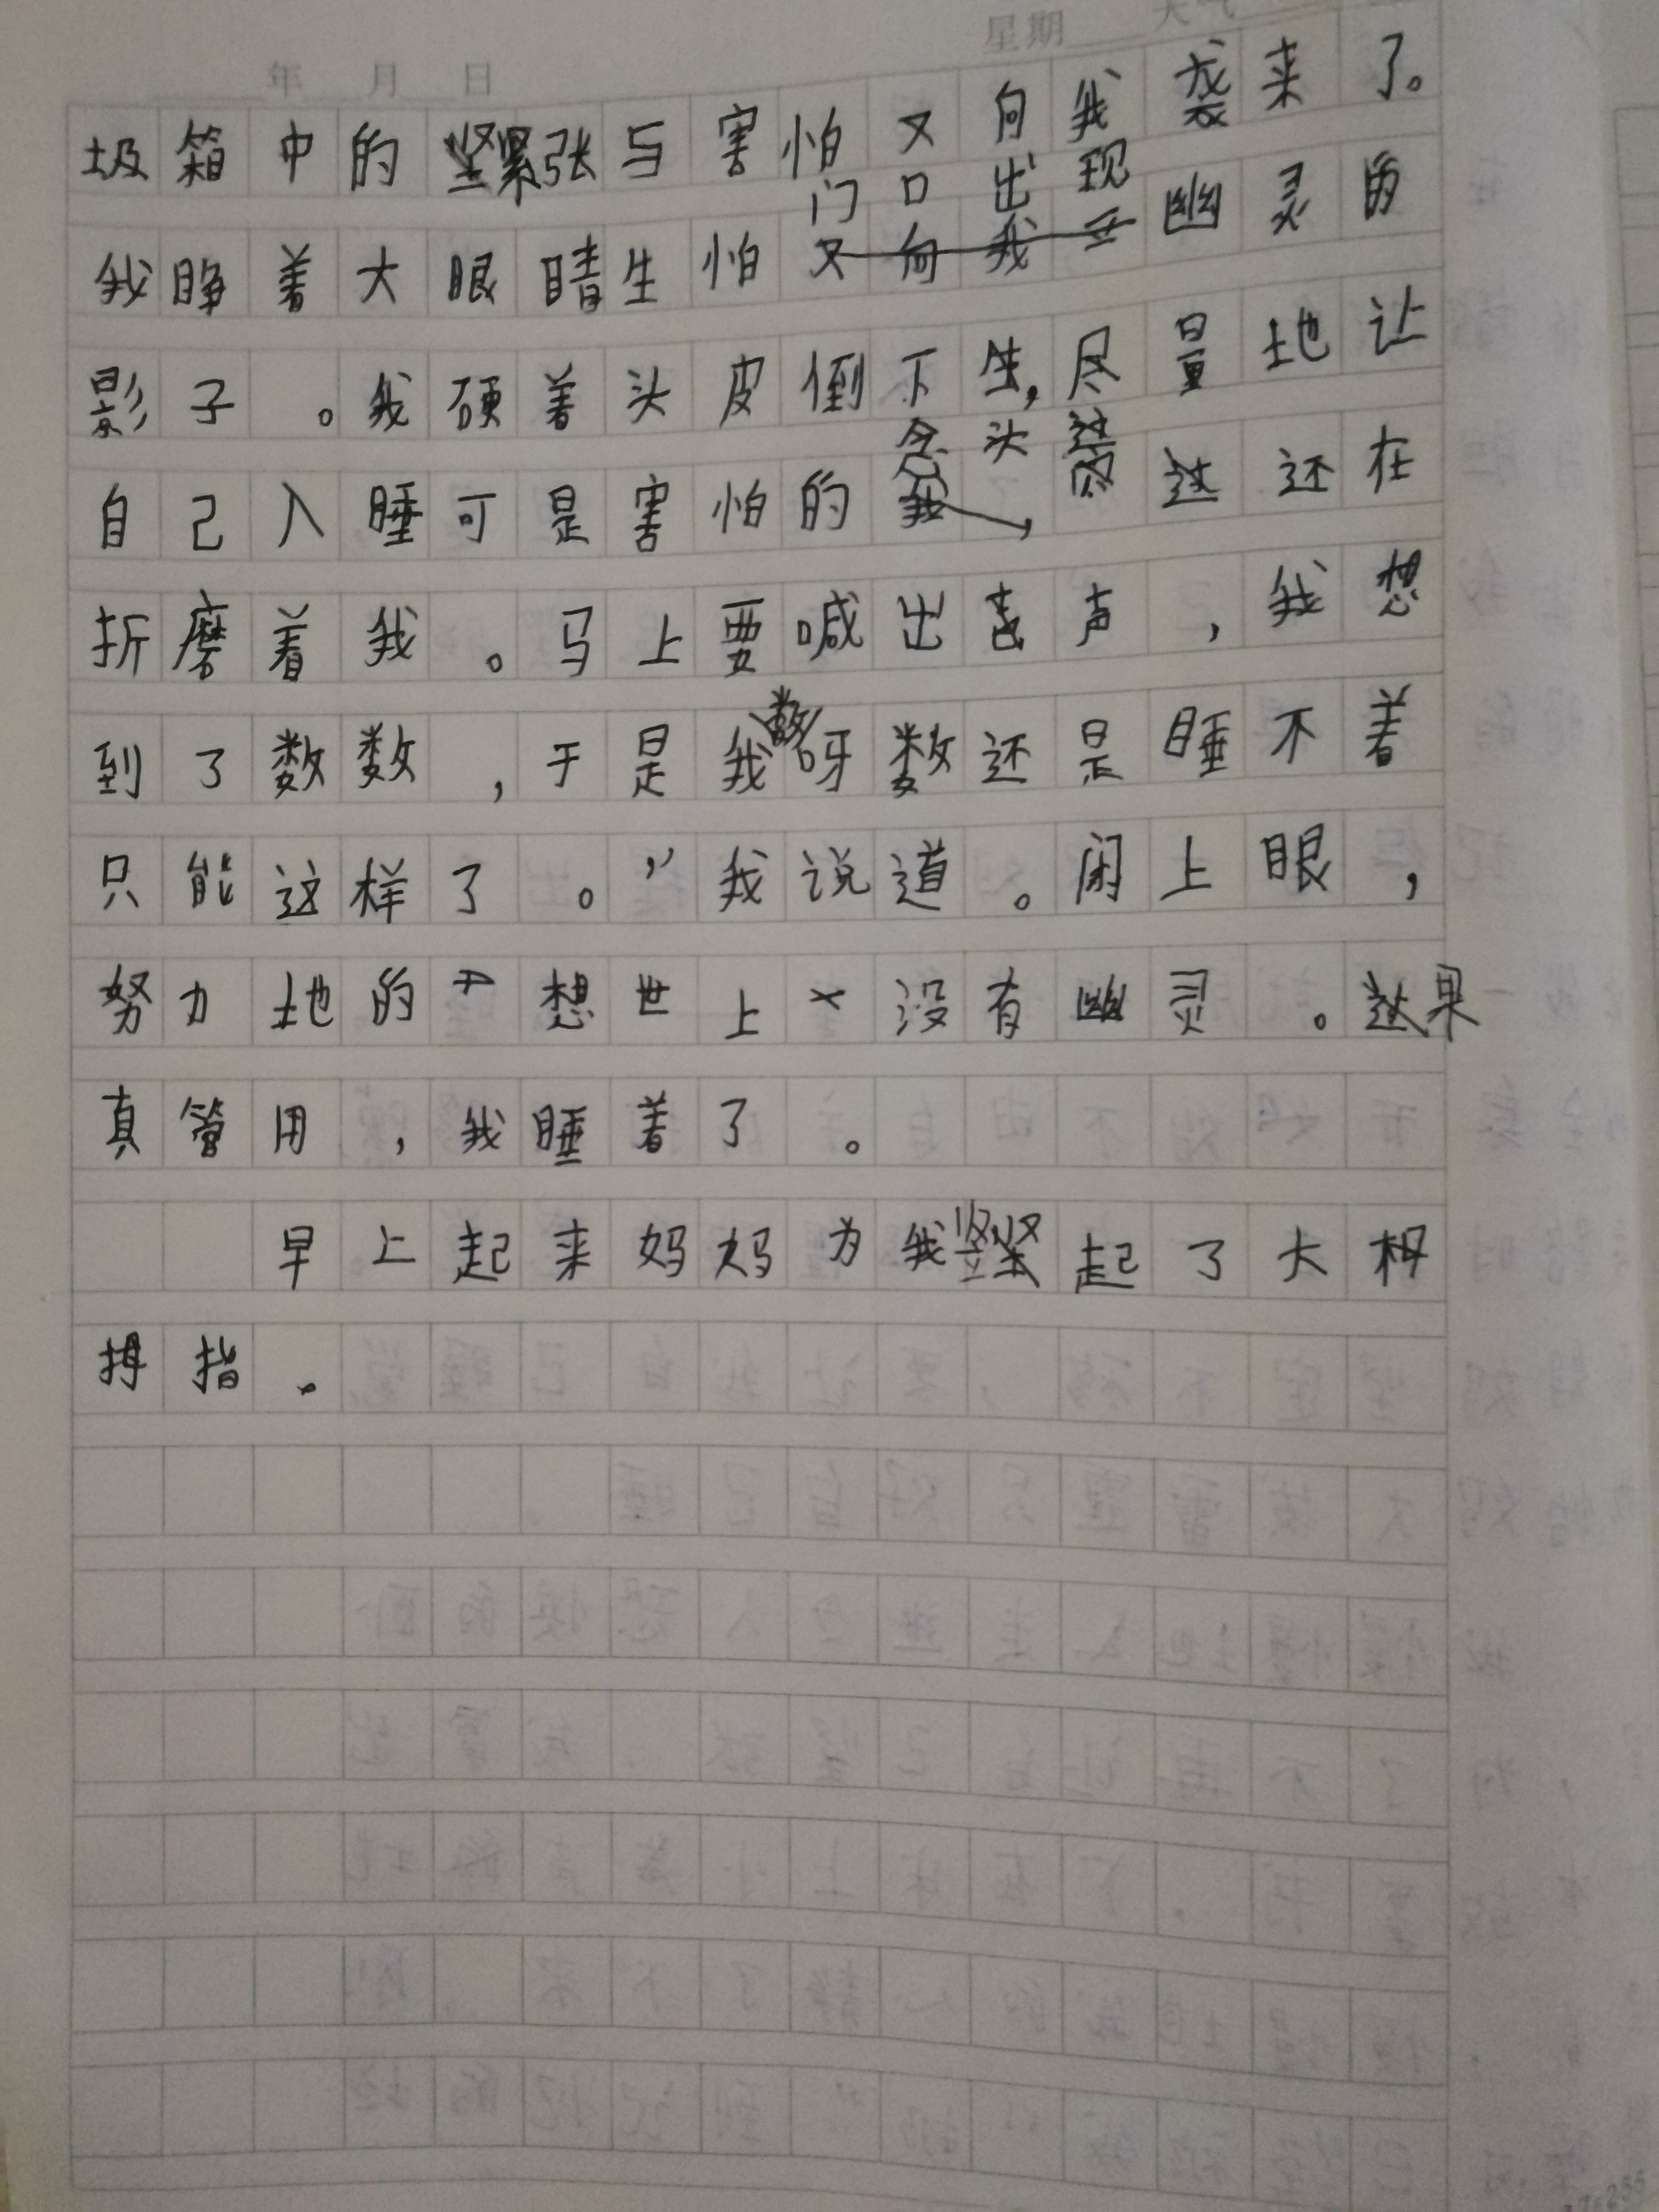 星期 天气
年 月 日
圾箱中的紧张与害怕又向我袭来了。
门口出现
我睁着大眼睛生怕又向我幽灵的
影子。我硬着头皮倒下生,尽量地让
念头
自己入睡可是害怕的我,还在
折磨着我。马上要喊出喜声,我想
到了数数,于是我数呀数还是睡不着
只能这样了。”我说道。闭上眼,
努力地的想世上没有幽灵。这果
真管用,我睡着了。
早上起来妈妈为我竖起了大拇
拇指.